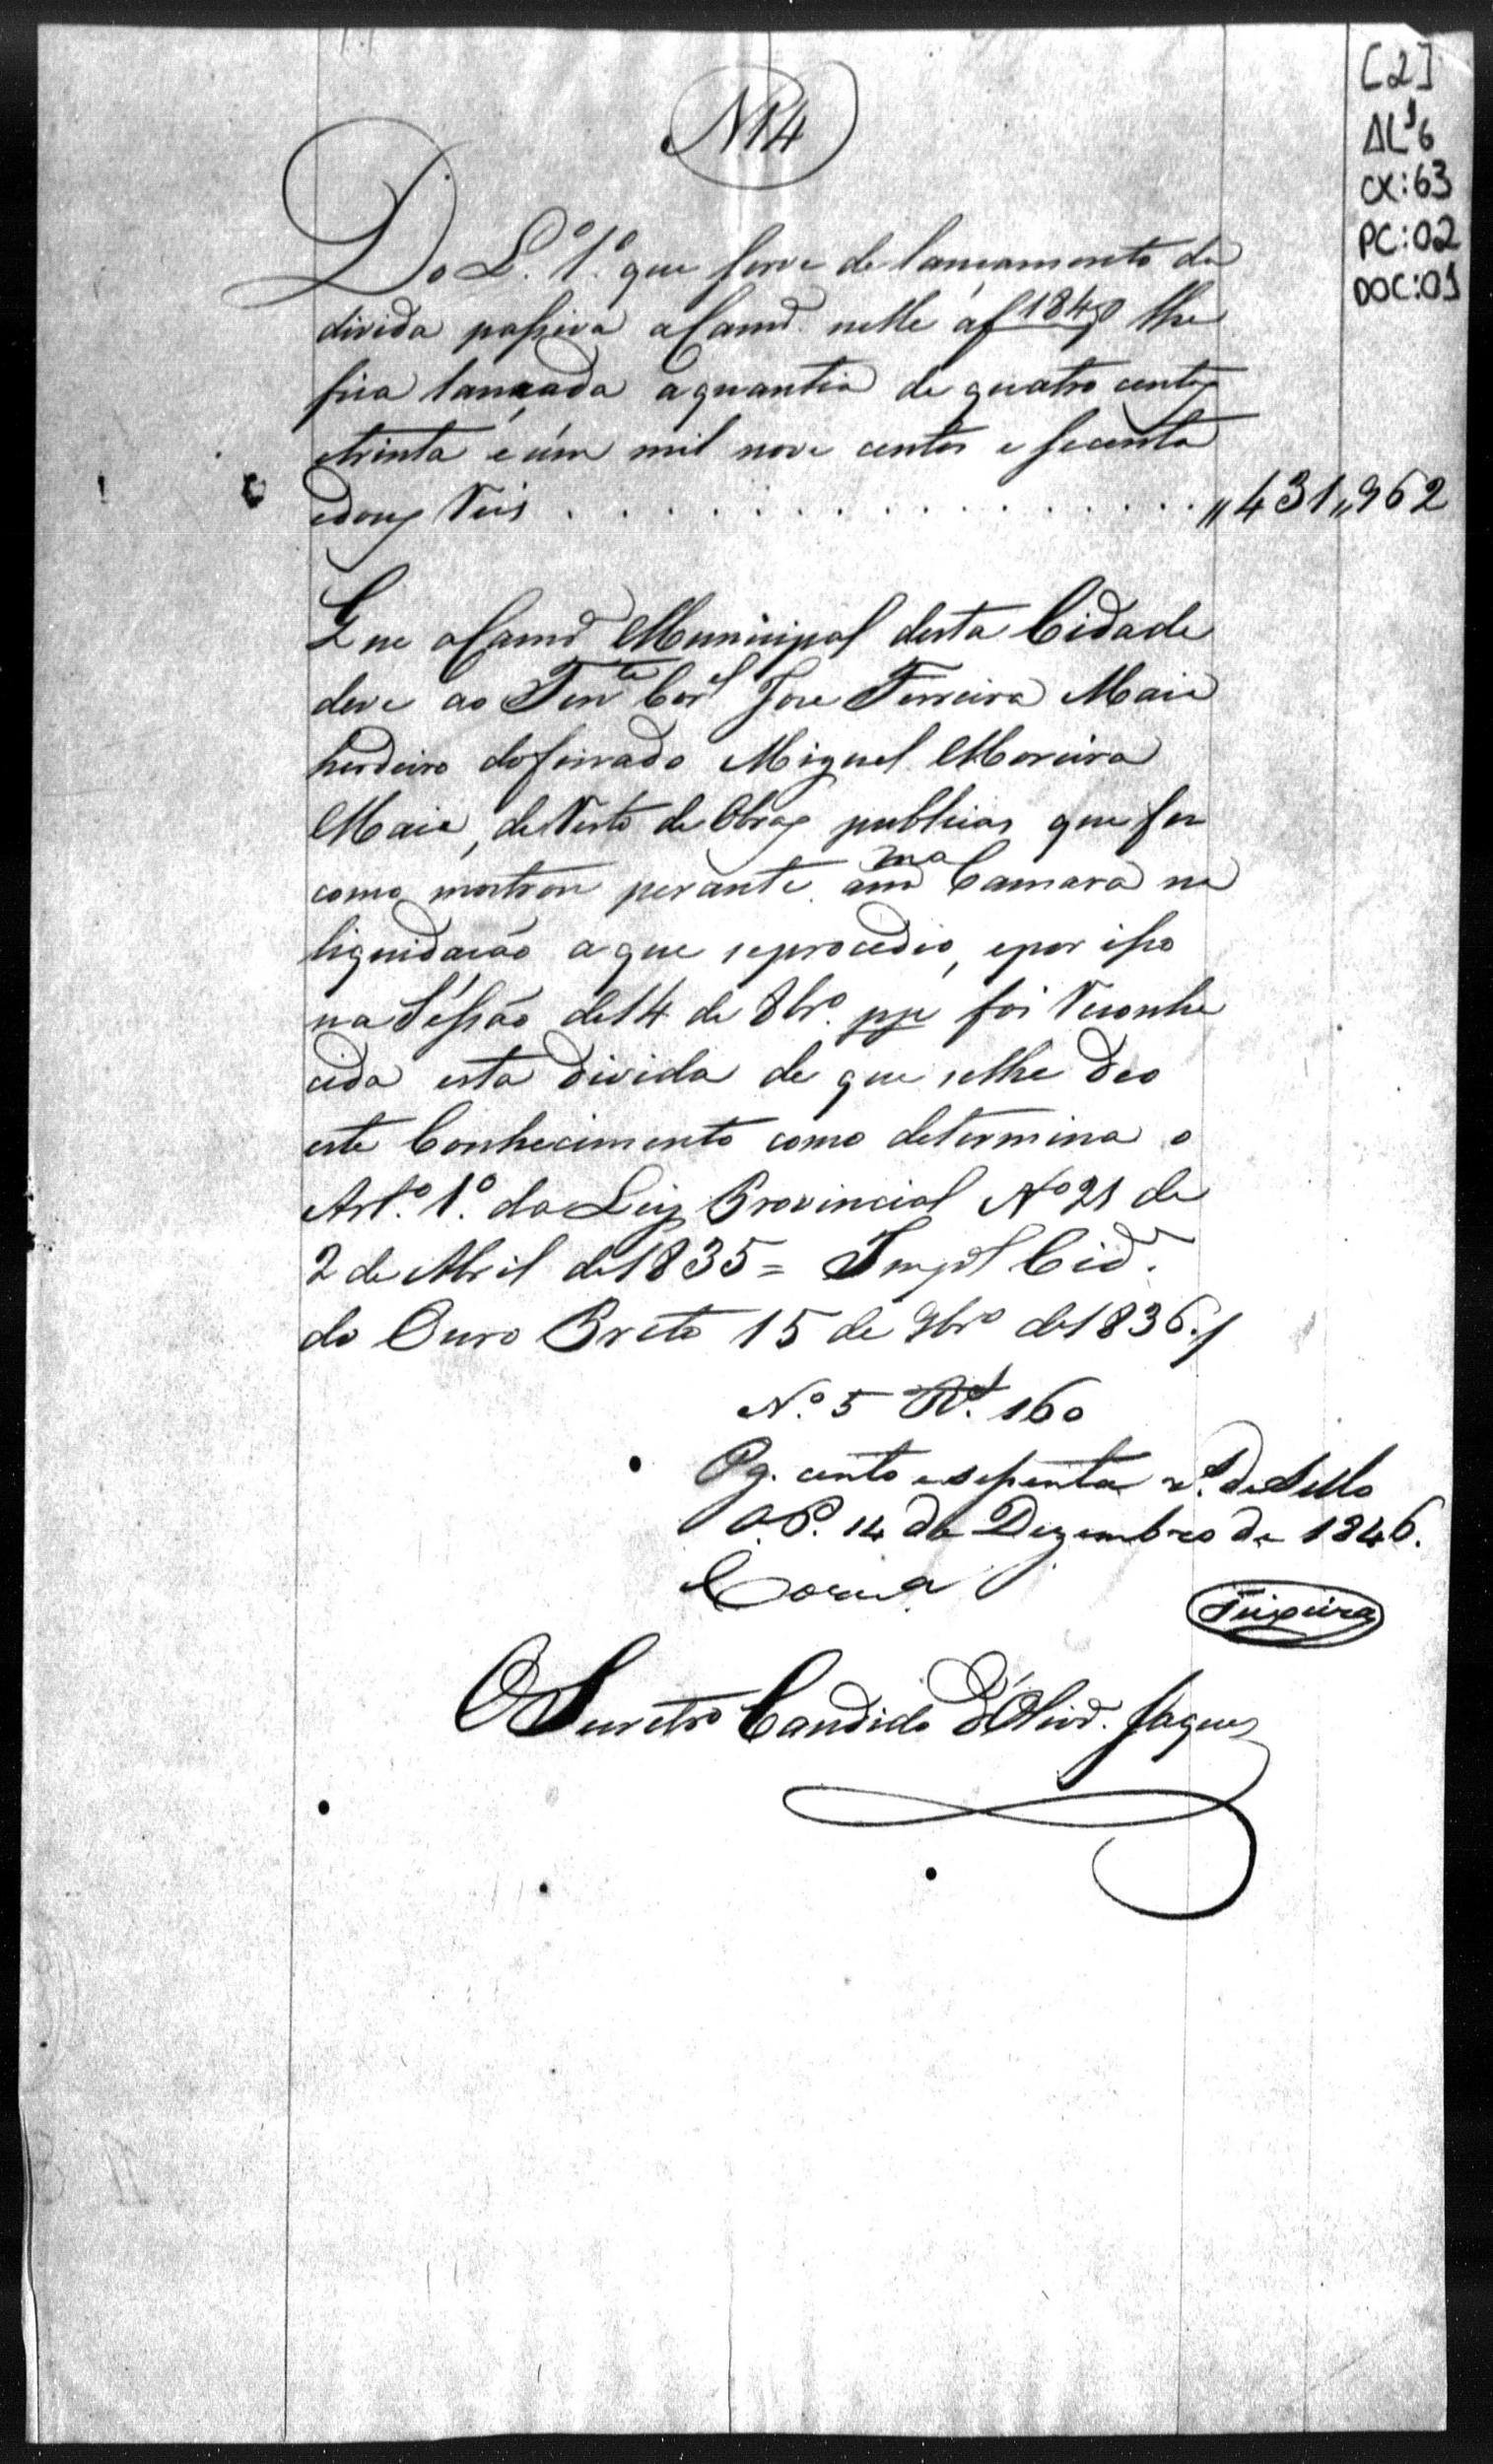 [2]
AL³6
CX:63
PC:02
DOC:01
N 14
Do L.º 1.º que serve de lançamento da
divida passiva a Camrª nelle á f 184 lhe
fica lançada a quantia de quatro centos
etrinta e úm mil nove centos e secenta
edous Reis . . . . . . . . . . . . . . . . . "431"962
Que a Camrª Municipal desta Cidade
deve ao Tente Corel Jose Ferreira Maia
herdeiro dofinado Miguel Moreira
Maia, de Resto de Obras publicas que fes
como mostrou perante a mma Camara na
liquidacão a que seprocedio, epor isso
na Séssão de 14 de 8brº. pp foi Reconhe
cida esta divida de que selhe deo
este Conhecimento como determina o
Art.º 1.º da Ley Provincial Nº 21 de
2 de Abril de 1835 = Impl Cide.
do Ouro Preto 15 de 9brº de 1836.
N.º 5 Rs. 160
Pg. cento esessenta rs. de Sello
O.P. 14 de Dezembro de 1846.
Correa
Teixeira
O Secretrº Candido d'Olivrª. Jaques